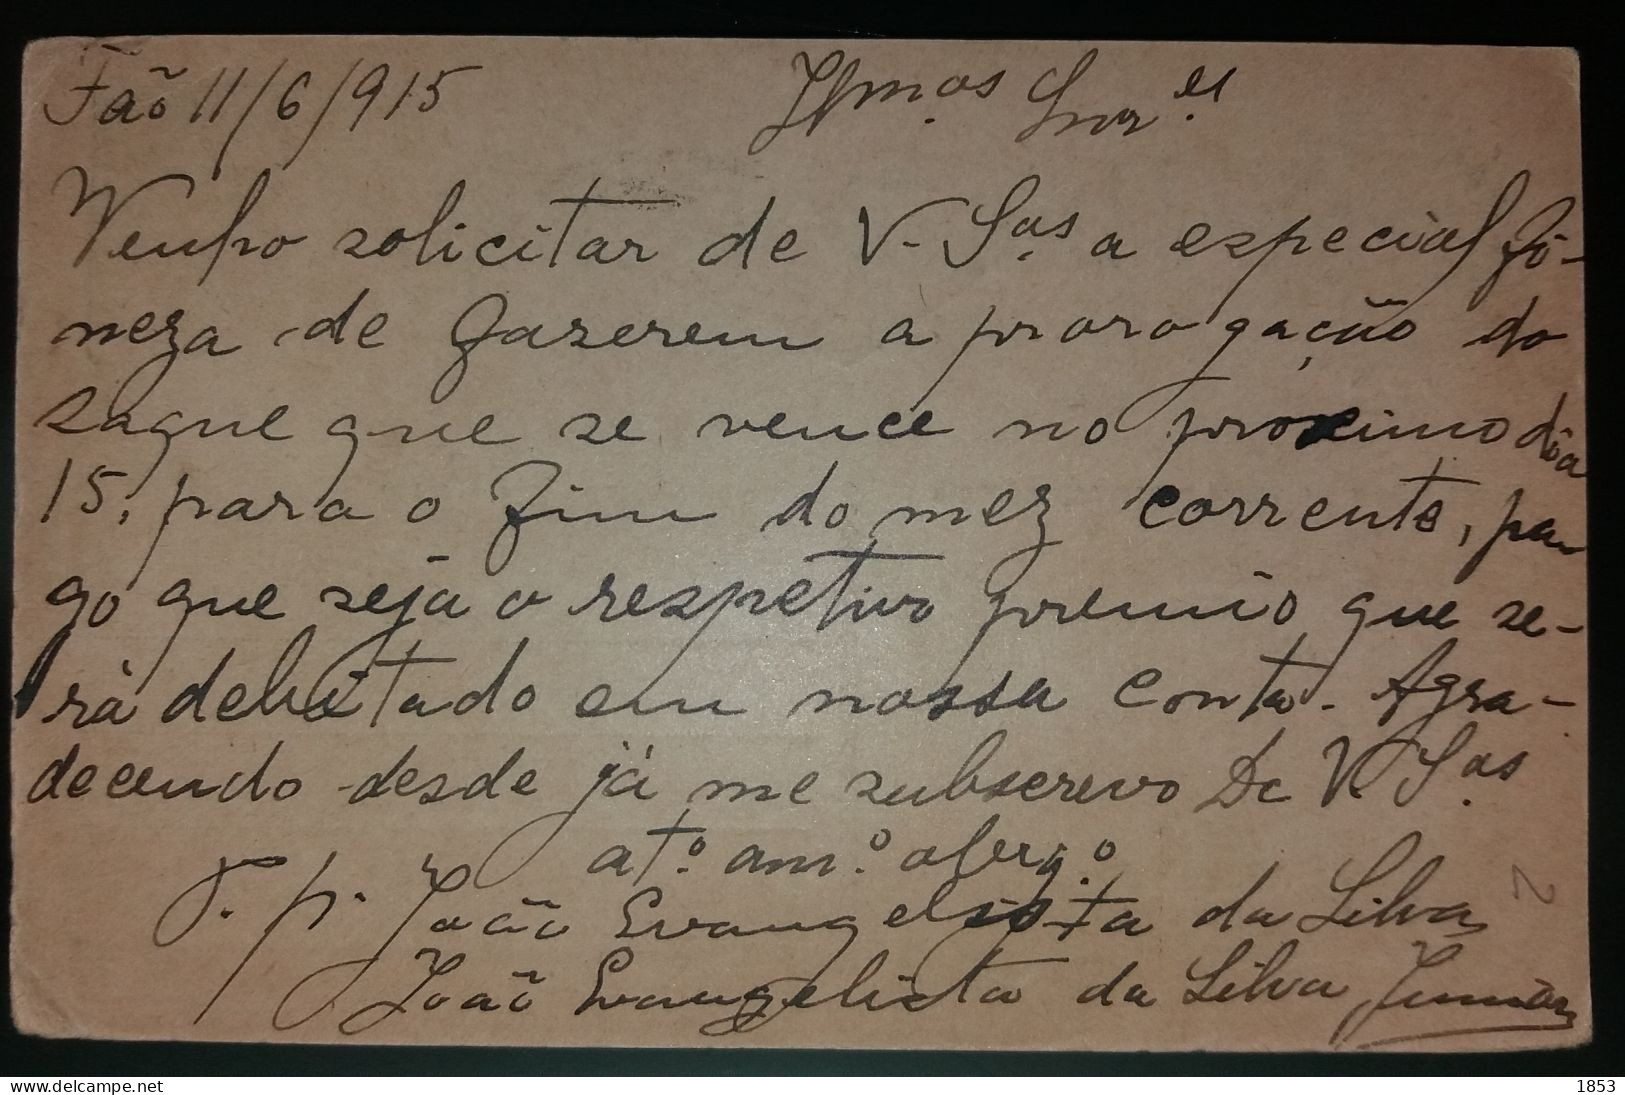 Fão 11/6/915
Illmos. Snres.
Venho solicitar de V. Sas. a especial fi-
neza de fazerem a prorogação do
saque que se vence no proximo dia
15, para o fim do mez corrente, pa-
go que seja o respetivo premio que se-
rà debitado em nossa conta. Agra-
decendo desde já me subscrevo De V. Sas.
at.º am.º obrg.º
P. p. João Evangelista da Silva
João Evangelista da Silva Junior
2
www.delcampe.net
jafite
1853